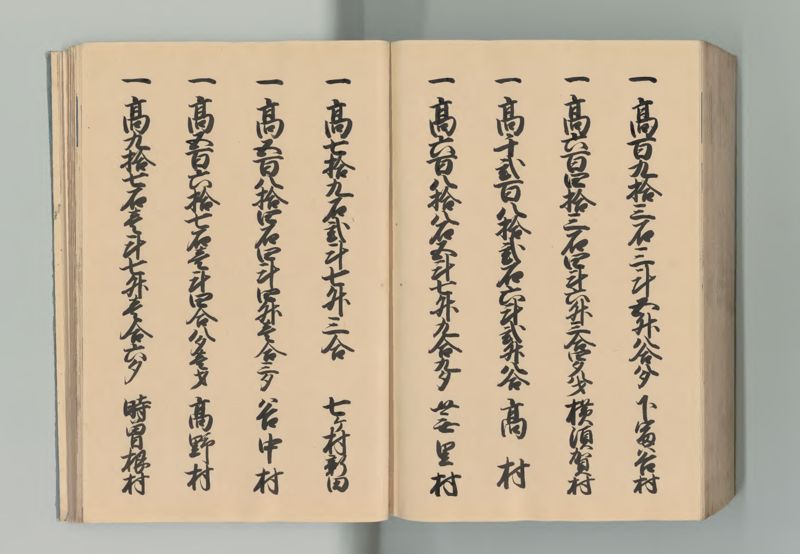 一 高百九拾三石三斗五升八合八夕 下冨谷村
一 高六百四拾三石四斗六升三合四夕八才 横須賀村
一 高千弐百八拾弐石六斗弐升八合 高村
一 高六百八拾八石五斗七升九合九夕 里村
一 高七拾九石弐斗七升三合 七ヶ村新田
一 高五百八拾四石四斗四升壱合三夕 谷中村
一 高五百六拾七石壱斗四合八夕壱才 高野村
一 高九拾七石壱斗七升壱合六夕 時曽根村